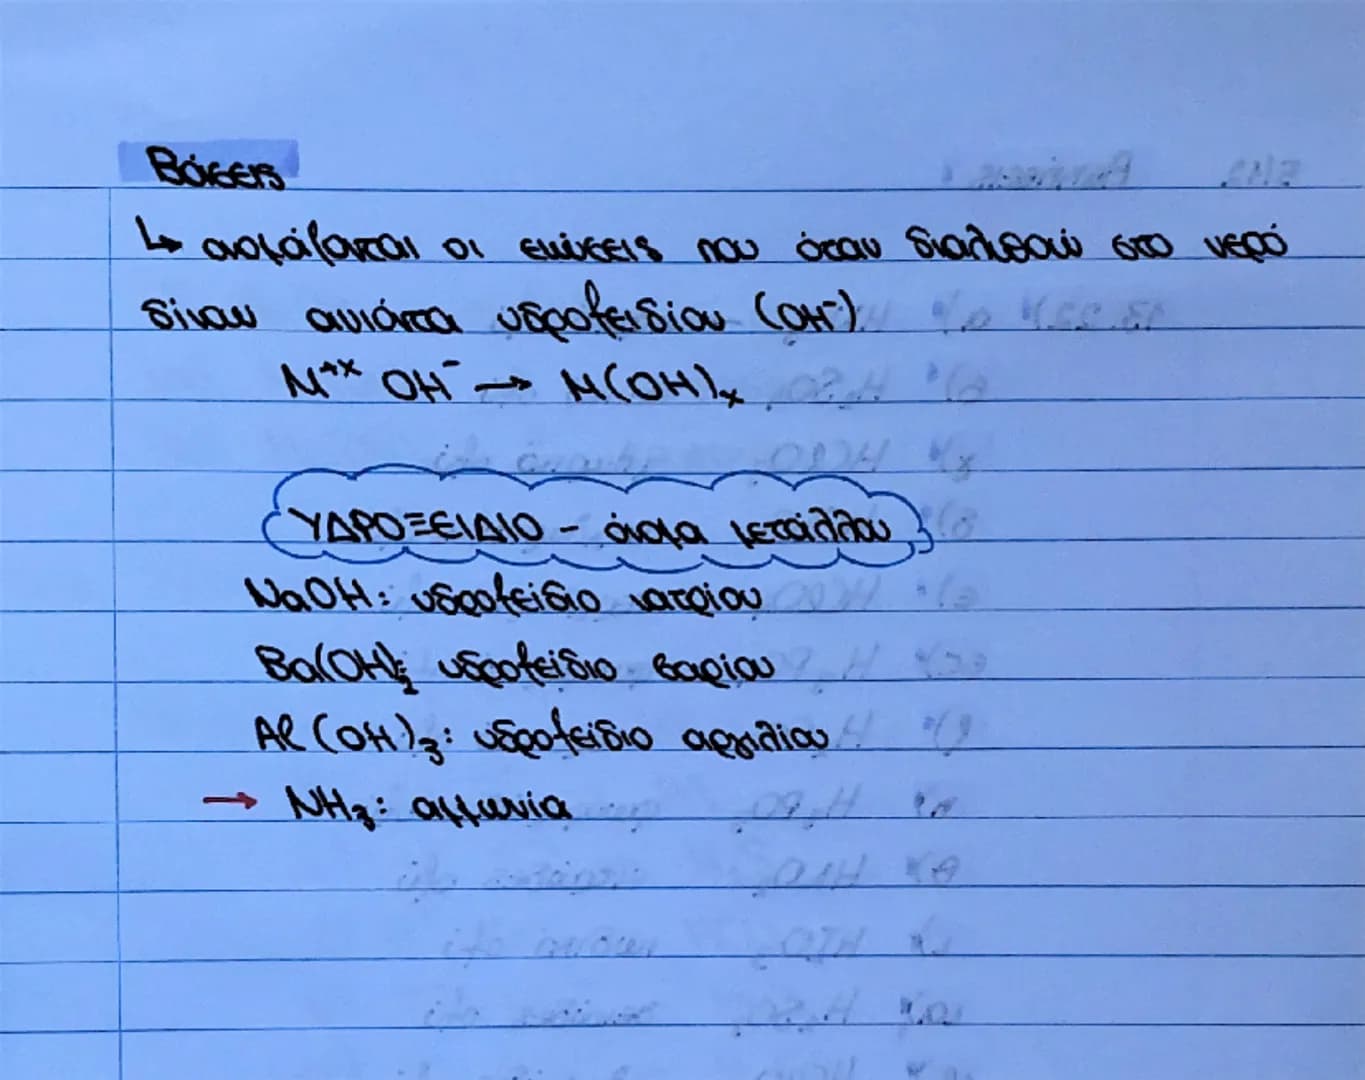 Βάσεις
↳ ονομάζονται οι ενώσεις που όταν διαλυθούν στο νερό
δίνουν ανιόντα υδροξειδίου (OH⁻)
M⁺ˣ OH⁻ → M(OH)ₓ
ΥΔΡΟΞΕΙΔΙΟ - όνομα μετάλλου
NaOH: υδροξείδιο νατρίου
Ba(OH)₂: υδροξείδιο βαρίου
Al(OH)₃: υδροξείδιο αργιλίου
→ NH₃: αμμωνία